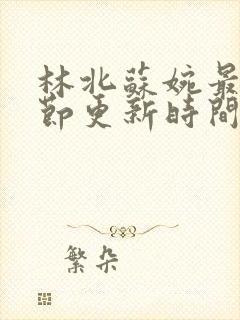 林北蘇婉最
節更新時間
繁朵